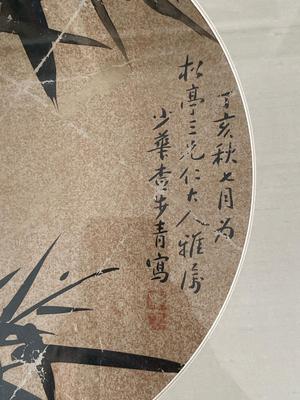 丁亥秋七月为
松亭三兄仁大人雅属
少華查步青寫